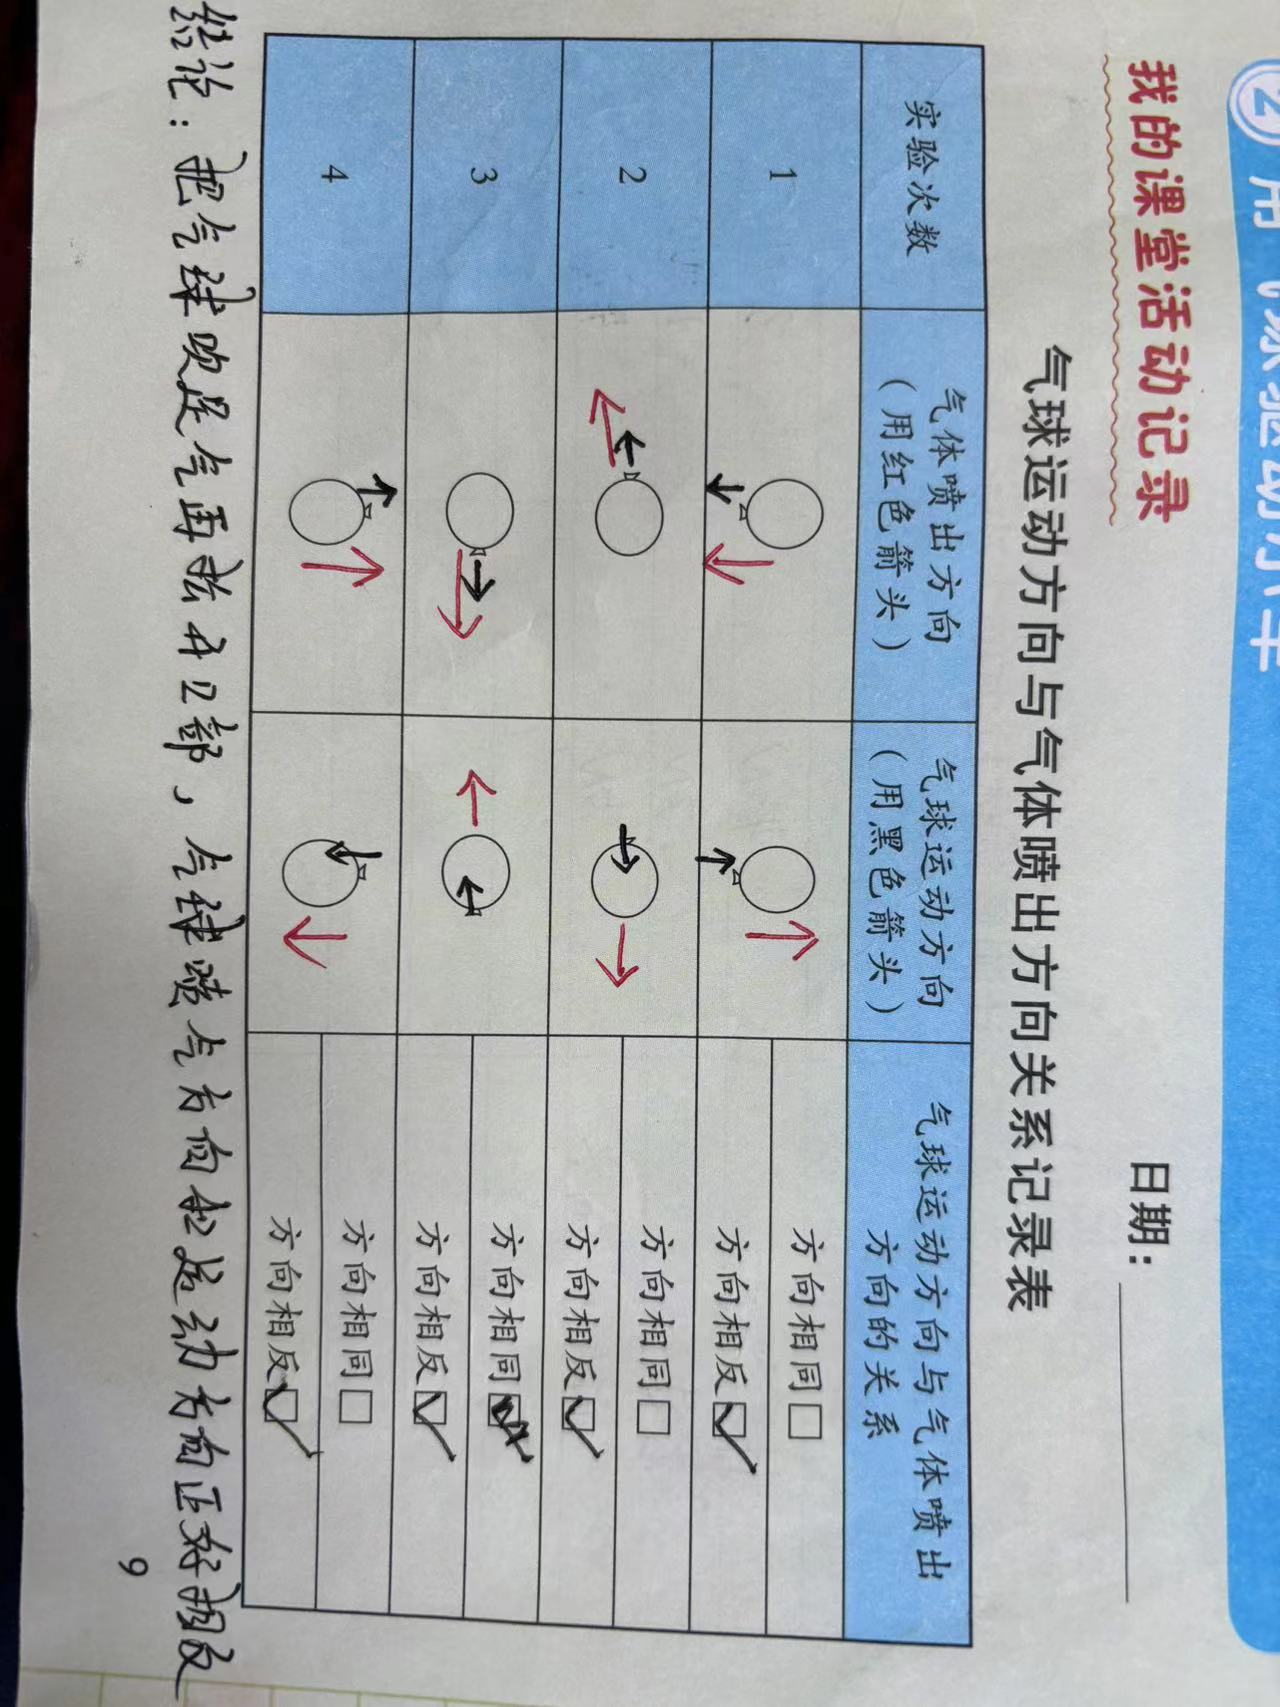 2 用气球驱动小车
我的课堂活动记录
日期：
气球运动方向与气体喷出方向关系记录表
实验次数
气体喷出方向
（用红色箭头）
气球运动方向
（用黑色箭头）
气球运动方向与气体喷出
方向的关系
1
方向相同□
方向相反☑
2
方向相同□
方向相反☑
3
方向相同☑
方向相反☑
4
方向相同□
方向相反☑
结论：把气球吹足气再放开口部，气球喷气方向和运动方向正好相反
9